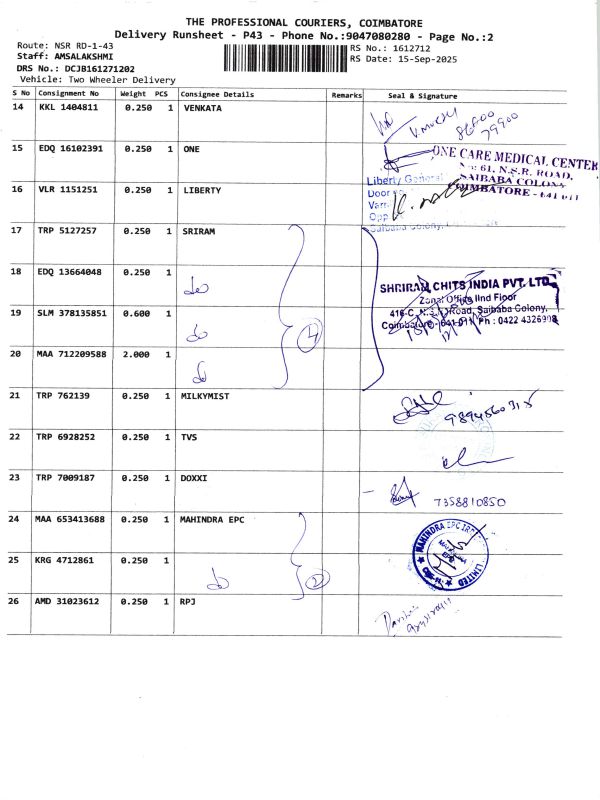 THE PROFESSIONAL COURIERS, COIMBATORE
Delivery Runsheet - P43 - Phone No.:9047080280 - Page No.:2
Route: NSR RD-1-43
RS No.: 1612712
Staff: AMSALAKSHMI
RS Date: 15-Sep-2025
DRS No.: DCJB161271202
Vehicle: Two Wheeler Delivery
S No Consignment No Weight PCS Consignee Details Remarks Seal & Signature
14 KKL 1404811 0.250 1 VENKATA
86800
79900
15 EDQ 16102391 0.250 1 ONE
ONE CARE MEDICAL CENTER
No: 61, N.S.R. ROAD,
SAIBABA COLONY
COIMBATORE - 641 011
16 VLR 1151251 0.250 1 LIBERTY
Liberty General
Door
Opp
Saibaba Colony,
17 TRP 5127257 0.250 1 SRIRAM
18 EDQ 13664048 0.250 1 do
SHRIRAM CHITS INDIA PVT. LTD.
Zonal Office IInd Floor
416-C, N.S.R Road, Saibaba Colony,
Coimbatore-641 011, Ph : 0422 4326998
19 SLM 378135851 0.600 1 do
4
20 MAA 712209588 2.000 1 do
21 TRP 762139 0.250 1 MILKYMIST
9894560315
22 TRP 6928252 0.250 1 TVS
23 TRP 7009187 0.250 1 DOXXI
7358810850
24 MAA 653413688 0.250 1 MAHINDRA EPC
MAHINDRA EPC
LIMITED
25 KRG 4712861 0.250 1 do
2
26 AMD 31023612 0.250 1 RPJ